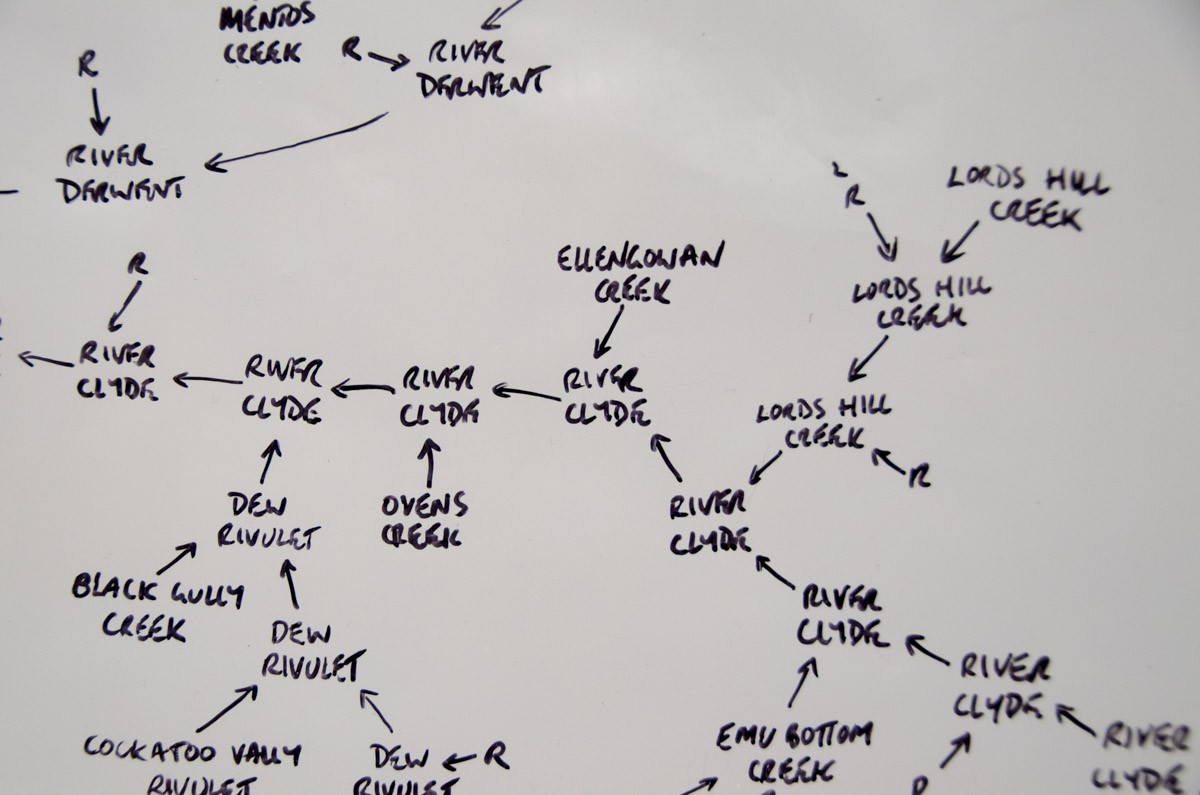 MENTOS
CREEK
R
RIVER
DERWENT
R
RIVER
DERWENT
R
RIVER
CLYDE
RIVER
CLYDE
RIVER
CLYDE
ELLENGOWAN
CREEK
RIVER
CLYDE
R
LORDS HILL
CREEK
LORDS HILL
CREEK
LORDS HILL
CREEK
R
RIVER
CLYDE
DEW
RIVULET
OVENS
CREEK
BLACK GULLY
CREEK
DEW
RIVULET
COCKATOO VALLY
RIVULET
DEW
RIVULET
R
RIVER
CLYDE
RIVER
CLYDE
RIVER
CLYDE
EMU BOTTOM
CREEK